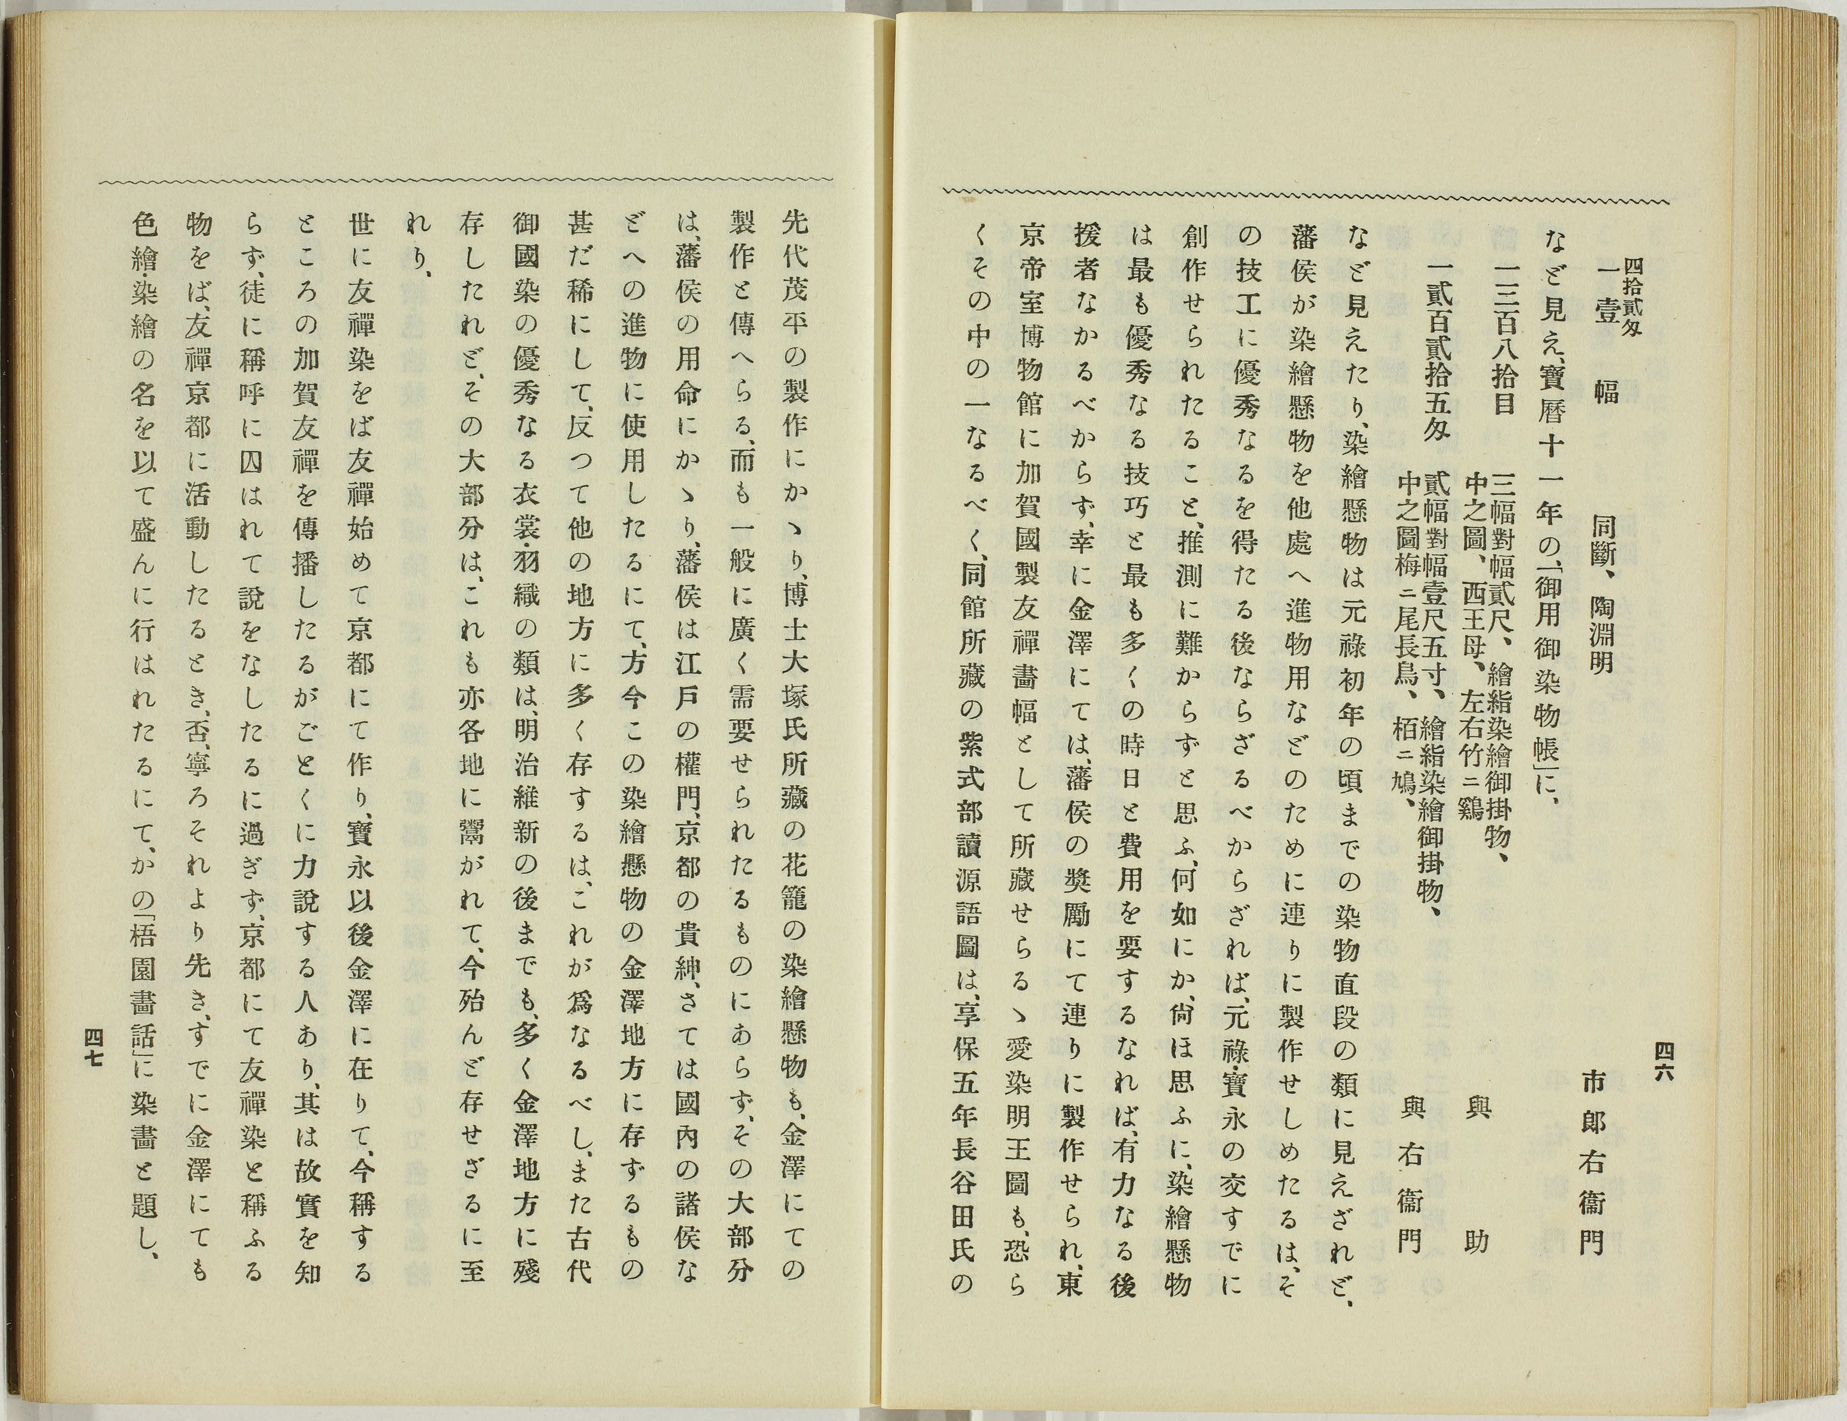 四六
四拾貳匁
一壹　幅　同斷、陶淵明　市郎右衞門
など見え、寶曆十一年の、「御用御染物帳」に、
一三百八拾目　三幅對幅貳尺、繪絹染繪御掛物、
中之圖、西王母、左右竹ニ鷄　與助
一貳百貳拾五匁　貳幅對幅壹尺五寸、繪絹染繪御掛物、
中之圖梅ニ尾長鳥、栢ニ鳩、　與右衞門
など見えたり、染繪懸物は元祿初年の頃までの染物直段の類に見えざれど、
藩侯が染繪懸物を他處へ進物用などのために連りに製作せしめたるは、そ
の技工に優秀なるを得たる後ならざるべからざれば、元祿・寶永の交すでに
創作せられたること、推測に難からずと思ふ、何如にか、尙ほ思ふに、染繪懸物
は最も優秀なる技巧と最も多くの時日と費用を要するなれば、有力なる後
援者なかるべからず、幸に金澤にては、藩侯の奬勵にて連りに製作せられ、東
京帝室博物館に加賀國製友禪畵幅として所藏せらるゝ愛染明王圖も、恐ら
くその中の一なるべく、同館所藏の紫式部讀源語圖は、享保五年長谷田氏の
先代茂平の製作にかゝり、博士大塚氏所藏の花籠の染繪懸物も、金澤にての
製作と傳へらる、而も一般に廣く需要せられたるものにあらず、その大部分
は、藩侯の用命にかゝり、藩侯は江戸の權門、京都の貴紳、さては國內の諸侯な
どへの進物に使用したるにて、方今この染繪懸物の金澤地方に存ずるもの
甚だ稀にして、反つて他の地方に多く存するは、これが爲なるべし、また古代
御國染の優秀なる衣裳・羽織の類は、明治維新の後までも、多く金澤地方に殘
存したれど、その大部分は、これも亦各地に鬻がれて、今殆んど存せざるに至
れり、
世に友禪染をば友禪始めて京都にて作り、寶永以後金澤に在りて、今稱する
ところの加賀友禪を傳播したるがごとくに力說する人あり、其は故實を知
らず、徒に稱呼に囚はれて說をなしたるに過ぎず、京都にて友禪染と稱ふる
物をば、友禪京都に活動したるとき、否、寧ろそれより先き、すでに金澤にても
色繪・染繪の名を以て盛んに行はれたるにて、かの「梧園畵話」に染畵と題し、
四七